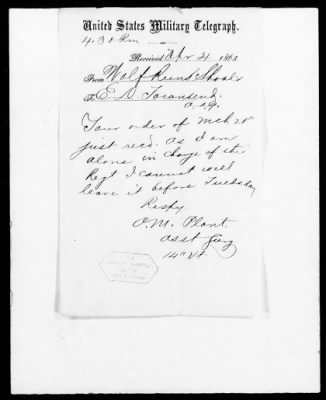 United States Military Telegraph.
4.30 Pm
Received Apr 4 1863
From Wolf Run Shoals
To E. D. Townsend.
a.a.g.
Your order of Mch 28"
just recd. as I am
alone in charge of the
Regt I cannot well
leave it before Tuesday
Respy
O. M. Plant.
Asst Surg
14" Vt